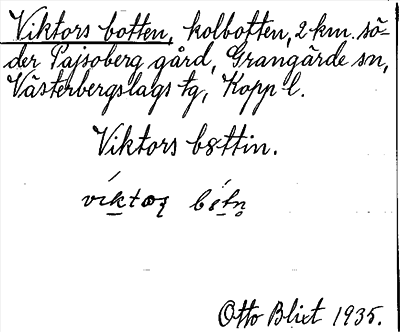 Viktors botten, kolbotten, 2 km. sö-
der Pajsoberg gård, Grangärde sn,
Västerbergslags tg, Kopp l.
Viktors bottin.
Otto Blixt 1935.